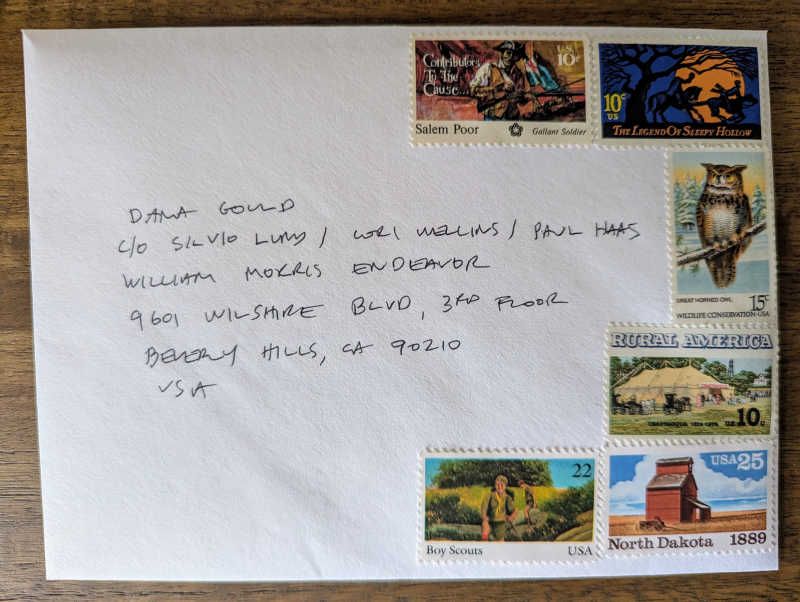 Contributors
To The
Cause...
U.S.
10c
Salem Poor
Gallant Soldier
10c
US
THE LEGEND OF SLEEPY HOLLOW
GREAT HORNED OWL
15c
WILDLIFE CONSERVATION·USA
DANA GOULD
C/O SILVIO / LORI / PAUL HAAS
WILLIAM MORRIS ENDEAVOR
9601 WILSHIRE BLVD, 3RD FLOOR
BEVERLY HILLS, CA 90210
USA
RURAL AMERICA
CHAUTAUQUA 1874-1974
U.S. 10c
22
Boy Scouts
USA
USA25
North Dakota
1889